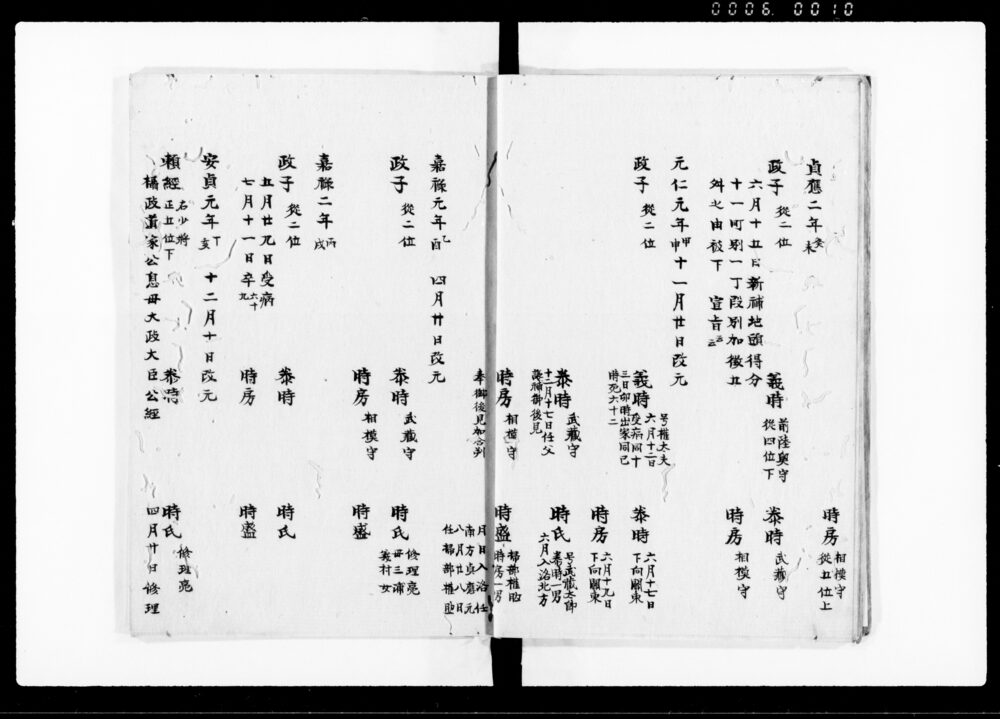 0006. 0010
貞應二年 癸未
政子 從二位
六月十五日新補地頭得分
十一町別一丁段別加徴五
舛之由被下 宣旨云云
義時 前陸奥守
從四位下
時房 相模守
從五位上
泰時 武藏守
時房 相模守
元仁元年 甲申 十一月廿日改元
政子 從二位
義時 号權太夫
六月十二日
受病同十
三日卯時出家同巳
時死六十二
泰時 六月十七日
下向關東
時房 六月十九日
下向關東
泰時 武藏守
十二月十七日任父
義補御後見
時氏 号武藏太郎
泰時一男
六月入洛北方
時房 相模守
奉御後見加合判
時盛 掃部權助
時房一男
月日入洛任
南方貞應元
八月廿八日
任掃部權助
嘉祿元年 乙酉 四月廿日改元
政子 從二位
泰時 武藏守
時房 相模守
時氏 修理亮
母三浦
義村女
時盛
嘉祿二年 丙戌
政子 從二位
五月廿九日受病
七月十一日卒 六十九
泰時
時房
時氏
時盛
安貞元年 丁亥 十二月十日改元
賴經 右少將
正五位下
攝政道家公息母大政大臣公經
泰時
時氏 修理亮
四月廿日修理